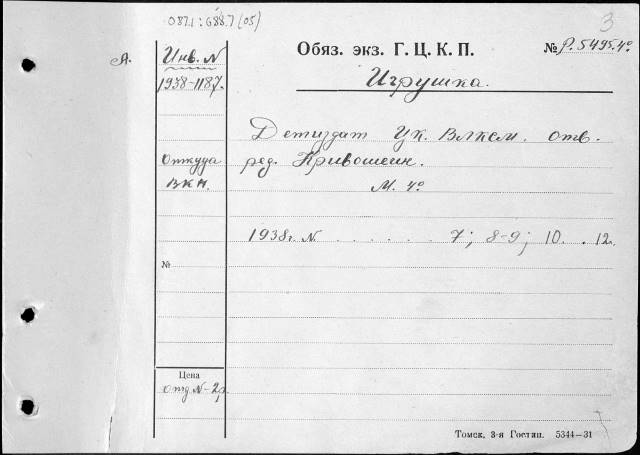 087.1 : 688.7 (05)
3
А.
Инв. N
1938-1187.
Обяз. экз. Г. Ц. К. П.
№ Р. 5495.4°
Игрушка.
Детиздат Цк. Влксм. отв.
ред. Кривошеин.
М. 4°
Откуда
ВКП.
1938г. N. . . . . . 7; 8-9; 10. .12.
№
Цена
отд N-2р.
Томск, 3-я Гостип. 5344—31